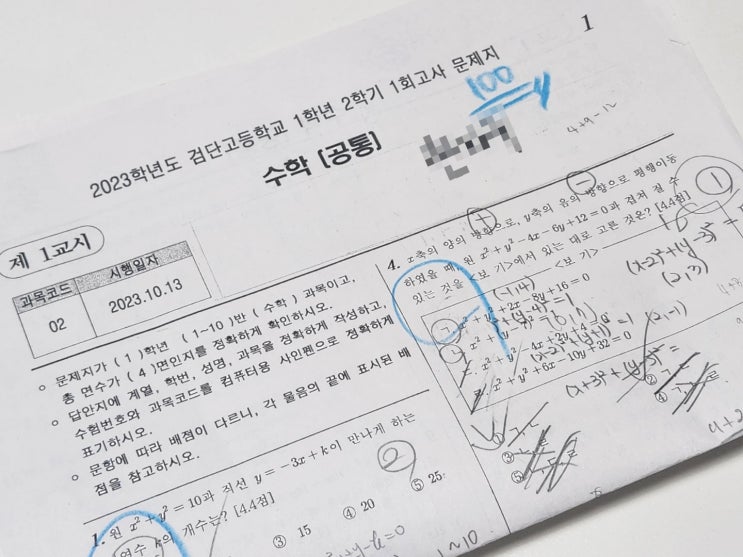 1
2023학년도 검단고등학교 1학년 2학기 1회고사 문제지
100
수학 [공통]
4+9-12
제 1교시
과목코드 시행일자
02 2023.10.13
○ 문제지가 ( 1 )학년 ( 1~10 )반 ( 수학 ) 과목이고,
총 면수가 ( 4 )면인지를 정확하게 확인하시오.
○ 답안지에 계열, 학번, 성명, 과목을 정확하게 작성하고,
수험번호와 과목코드를 컴퓨터용 사인펜으로 정확하게
표기하시오.
○ 문항에 따라 배점이 다르니, 각 물음의 끝에 표시된 배
점을 참고하시오.
1. 원 x²+y²=10과 직선 y=-3x+k이 만나게 하는
연수 k의 개수는? [4.4점]
②
③ 15 ④ 20 ⑤ 25
1~10
4. x축의 양의 방향으로, y축의 음의 방향으로 평행이동
+ -
하였을 때, 원 x²+y²-4x-6y+12=0과 겹쳐 질 수
있는 것을 <보 기>에서 있는 대로 고른 것은? [4.4점]
①
<보 기>
(-1,4)
(2,3)
ㄱ. x²+y²+2x-8y+16=0
(0,1)
(2,-1)
ㄹ. x²+y²+6x-10y+32=0